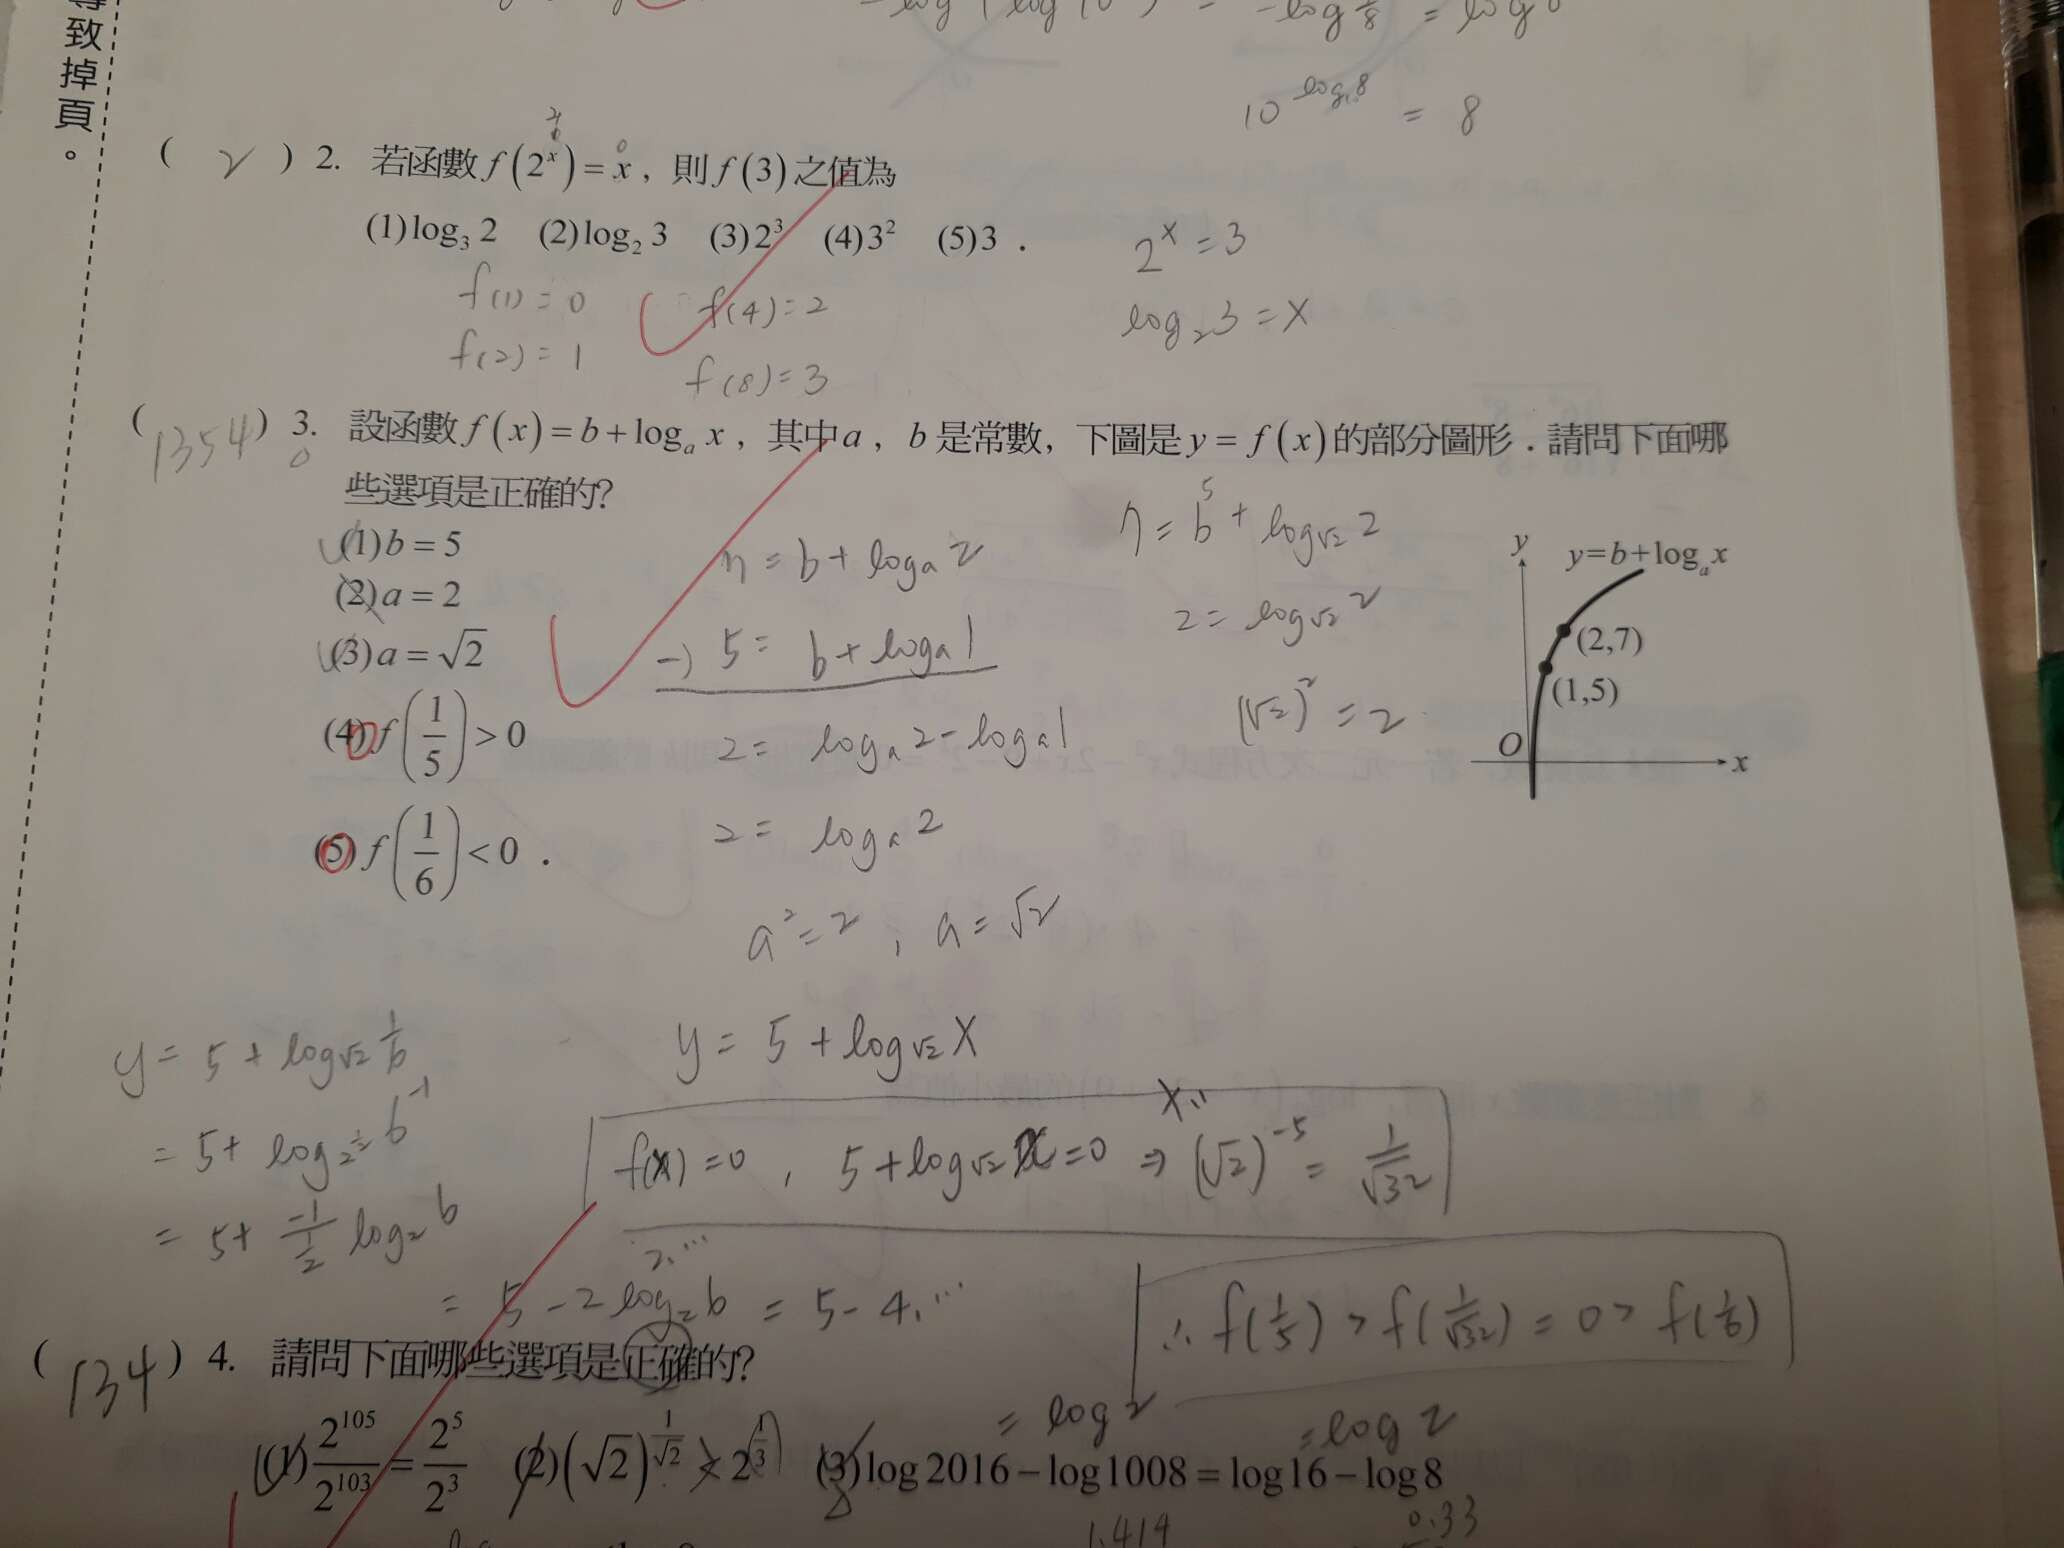 致掉頁。
= log 8
10^{log 8} = 8
( 2 ) 2. 若函數 f(2^x) = x，則 f(3) 之值為
(1) log_3 2 (2) log_2 3 (3) 2^3 (4) 3^2 (5) 3．
2^x = 3
f(1) = 0 f(4) = 2
log_2 3 = x
f(2) = 1 f(8) = 3
( 1354 ) 3. 設函數 f(x) = b + log_a x，其中 a，b 是常數，下圖是 y = f(x) 的部分圖形．請問下面哪
些選項是正確的？
(1) b = 5
(2) a = 2
(3) a = √2
(4) f(1/5) > 0
(5) f(1/6) < 0．
7 = b + log_a 2
-) 5 = b + log_a 1
2 = log_a 2 - log_a 1
2 = log_a 2
a^2 = 2, a = √2
7 = b + log_√2 2
5
2 = log_√2 2
(√2)^2 = 2
y
y = b + log_a x
(2,7)
(1,5)
O
x
y = 5 + log_√2 x
y = 5 + log_√2 1/6
= 5 + log_{2^{1/2}} 6^{-1}
= 5 + -1/(1/2) log_2 6
= 5 - 2 log_2 6 = 5 - 4.…
2.…
f(x) = 0, 5 + log_√2 x = 0 ⇒ (√2)^{-5} = 1/√32
∴ f(1/5) > f(1/√32) = 0 > f(1/6)
( 134 ) 4. 請問下面哪些選項是正確的？
= log 2 = log 2
(1) 2^105/2^103 = 2^5/2^3 (2) (√2)^{1/√2} > 2^{1/3} (3) log 2016 − log 1008 = log 16 − log 8
1.414 0.33